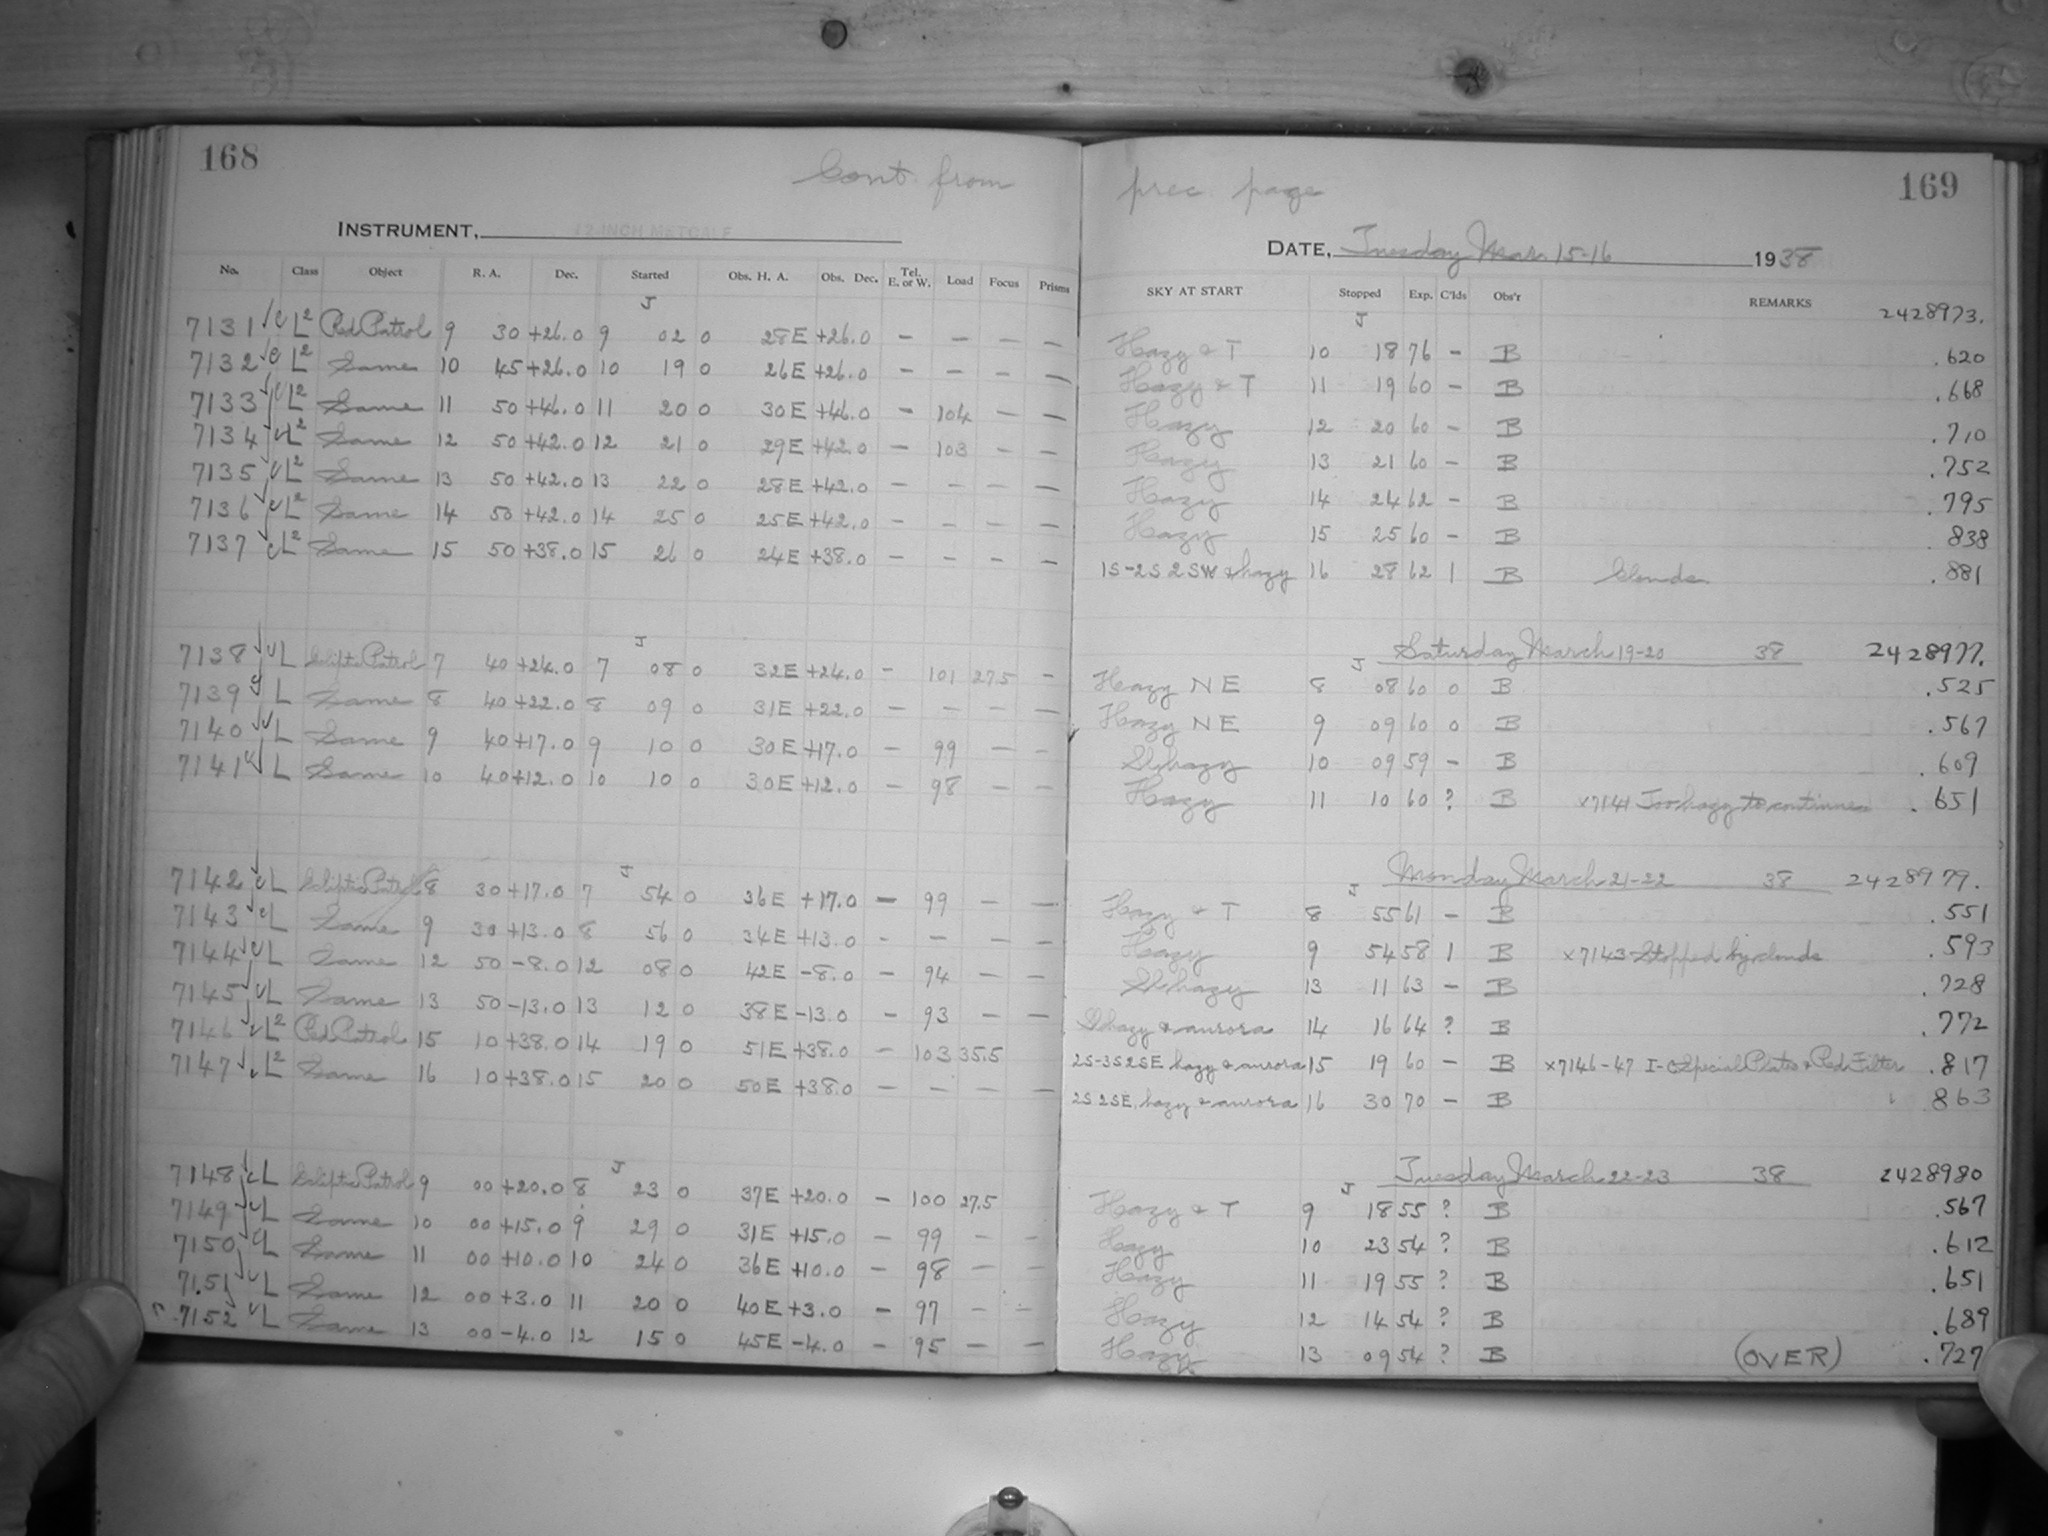 168
Cont. from
INSTRUMENT, 12-INCH METCALF
No. Class Object R. A. Dec. Started Obs. H. A. Obs. Dec. Tel. E. or W. Load Focus Prisms
J
7131 L² Red Patrol 9 30 +26.0 9 02 0 28E +26.0 — — — —
7132 L² Same 10 45 +26.0 10 19 0 26E +26.0 — — — —
7133 L² Same 11 50 +46.0 11 20 0 30E +46.0 — 104 — —
7134 L² Same 12 50 +42.0 12 21 0 29E +42.0 — 103 — —
7135 L² Same 13 50 +42.0 13 22 0 28E +42.0 — — — —
7136 L² Same 14 50 +42.0 14 25 0 25E +42.0 — — — —
7137 L² Same 15 50 +38.0 15 26 0 24E +38.0 — — — —
J
7138 L Ecliptic Patrol 7 40 +24.0 7 08 0 32E +24.0 — 101 27.5 —
7139 L Same 8 40 +22.0 8 09 0 31E +22.0 — — — —
7140 L Same 9 40 +17.0 9 10 0 30E +17.0 — 99 — —
7141 L Same 10 40 +12.0 10 10 0 30E +12.0 — 98 — —
J
7142 L Ecliptic Patrol 8 30 +17.0 7 54 0 36E +17.0 — 99 — —
7143 L Same 9 30 +13.0 8 56 0 34E +13.0 — — — —
7144 L Same 12 50 -8.0 12 08 0 42E -8.0 — 94 — —
7145 L Same 13 50 -13.0 13 12 0 38E -13.0 — 93 — —
7146 L² Red Patrol 15 10 +38.0 14 19 0 51E +38.0 — 103 35.5
7147 L² Same 16 10 +38.0 15 20 0 50E +38.0 — — — —
J
7148 L Ecliptic Patrol 9 00 +20.0 8 23 0 37E +20.0 — 100 27.5
7149 L Same 10 00 +15.0 9 29 0 31E +15.0 — 99 — —
7150 L Same 11 00 +10.0 10 24 0 36E +10.0 — 98 — —
7151 L Same 12 00 +3.0 11 20 0 40E +3.0 — 97 — —
7152 L Same 13 00 -4.0 12 15 0 45E -4.0 — 95 — —
prec. page
169
DATE, Tuesday Mar. 15-16 1938
SKY AT START Stopped Exp. C'lds Obs'r REMARKS
J 2428973.
Hazy & T 10 18 76 — B .620
Hazy & T 11 19 60 — B .668
Hazy 12 20 60 — B .710
Hazy 13 21 60 — B .752
Hazy 14 24 62 — B .795
Hazy 15 25 60 — B .838
1S-2S 2SW & hazy 16 28 62 1 B Clouds .881
J Saturday March 19-20 38 2428977.
Hazy NE 8 08 60 0 B .525
Hazy NE 9 09 60 0 B .567
Sl. hazy 10 09 59 — B .609
Hazy 11 10 60 ? B x7141 Too hazy to continue .651
J Monday March 21-22 38 2428979.
Hazy & T 8 55 61 — B .551
Hazy 9 54 58 1 B x7143 Stopped by clouds .593
Sl. hazy 13 11 63 — B .728
Sl. hazy & aurora 14 16 64 ? B .772
2S-3S 2SE, hazy & aurora 15 19 60 — B x7146-47 I-C Special Plates & Red Filter .817
2S 2SE, hazy & aurora 16 30 70 — B .863
J Tuesday March 22-23 38 2428980
Hazy & T 9 18 55 ? B .567
Hazy 10 23 54 ? B .612
Hazy 11 19 55 ? B .651
Hazy 12 14 54 ? B .689
Hazy 13 09 54 ? B (OVER) .727